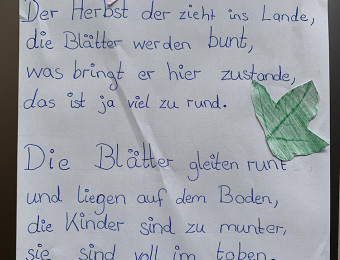 Der Herbst der zieht ins Lande,
die Blätter werden bunt,
was bringt er hier zustande,
das ist ja viel zu rund.
Die Blätter gleiten runt
und liegen auf dem Boden,
die Kinder sind zu munter,
sie sind voll im toben.